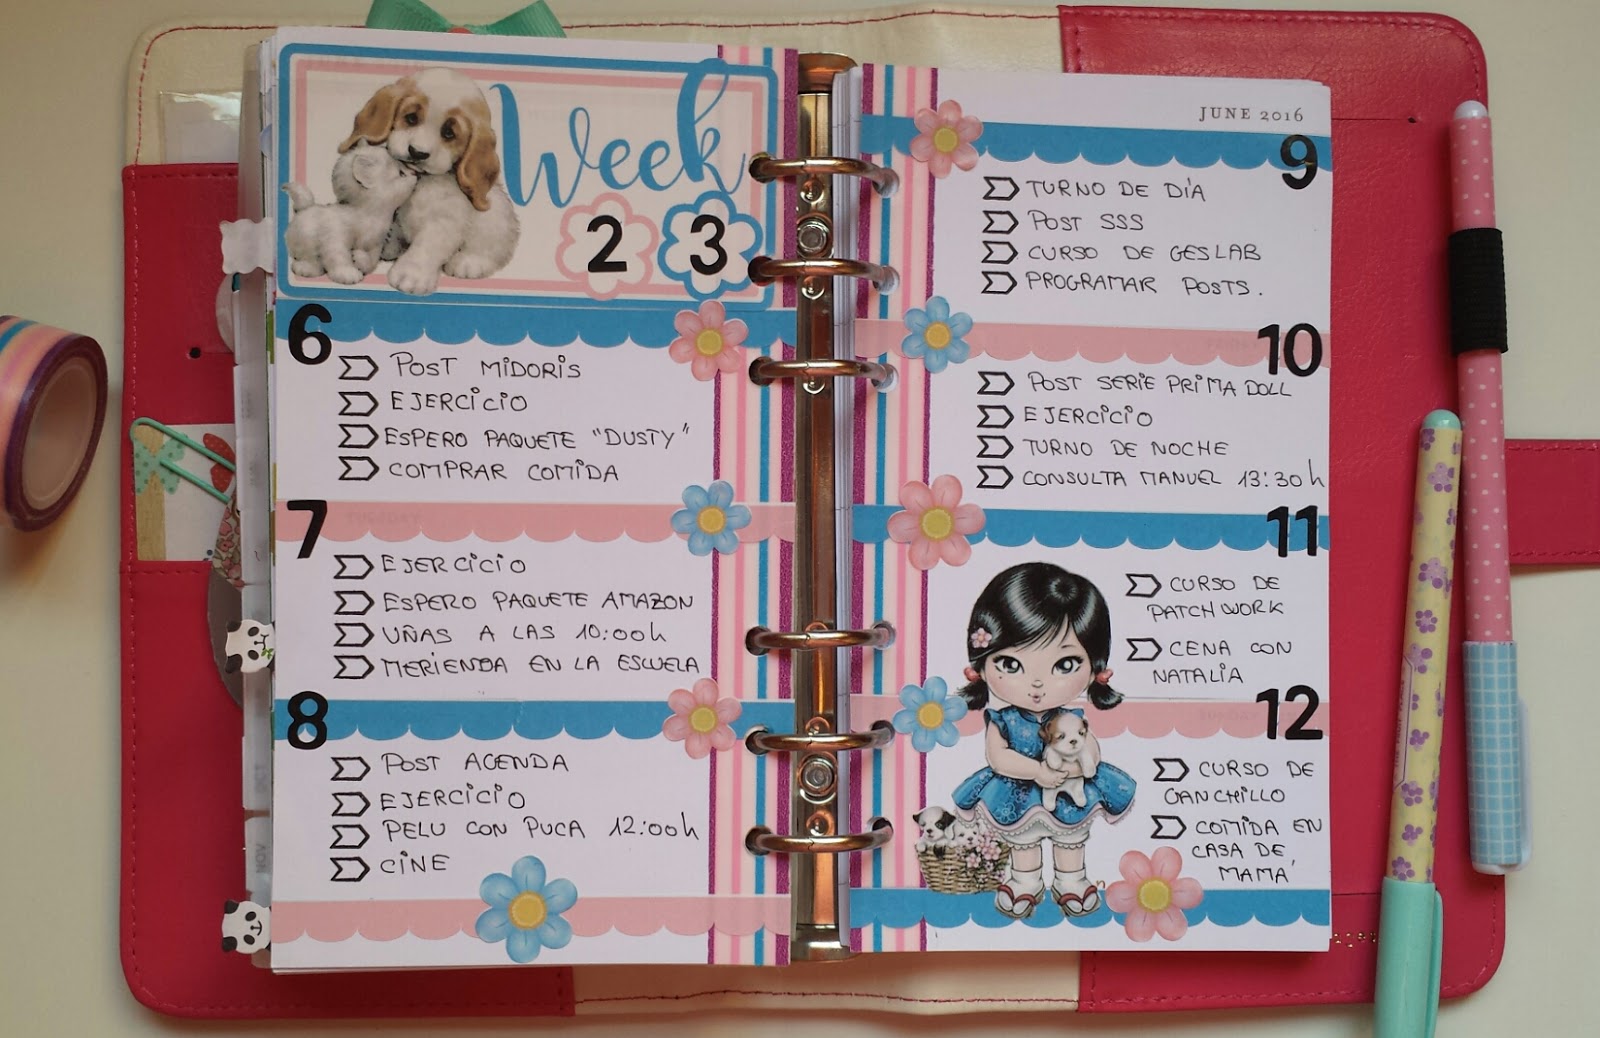 Week
2 3
6
POST MIDORIS
EJERCICIO
ESPERO PAQUETE "DUSTY"
COMPRAR COMIDA
7
TUESDAY
EJERCICIO
ESPERO PAQUETE AMAZON
UÑAS A LAS 10:00h
MERIENDA EN LA ESCUELA
8
POST AGENDA
EJERCICIO
PELU CON PUCA 12:00h
CINE
OCT
NOV
JUNE 2016
9
TURNO DE DÍA
POST SSS
CURSO DE GESLAB
PROGRAMAR POSTS.
10
POST SERIE PRIMA DOLL
EJERCICIO
TURNO DE NOCHE
CONSULTA MANUEL 13:30h
11
CURSO DE
PATCHWORK
CENA CON
NATALIA
12
CURSO DE
GANCHILLO
COMIDA EN
CASA DE
MAMÁ